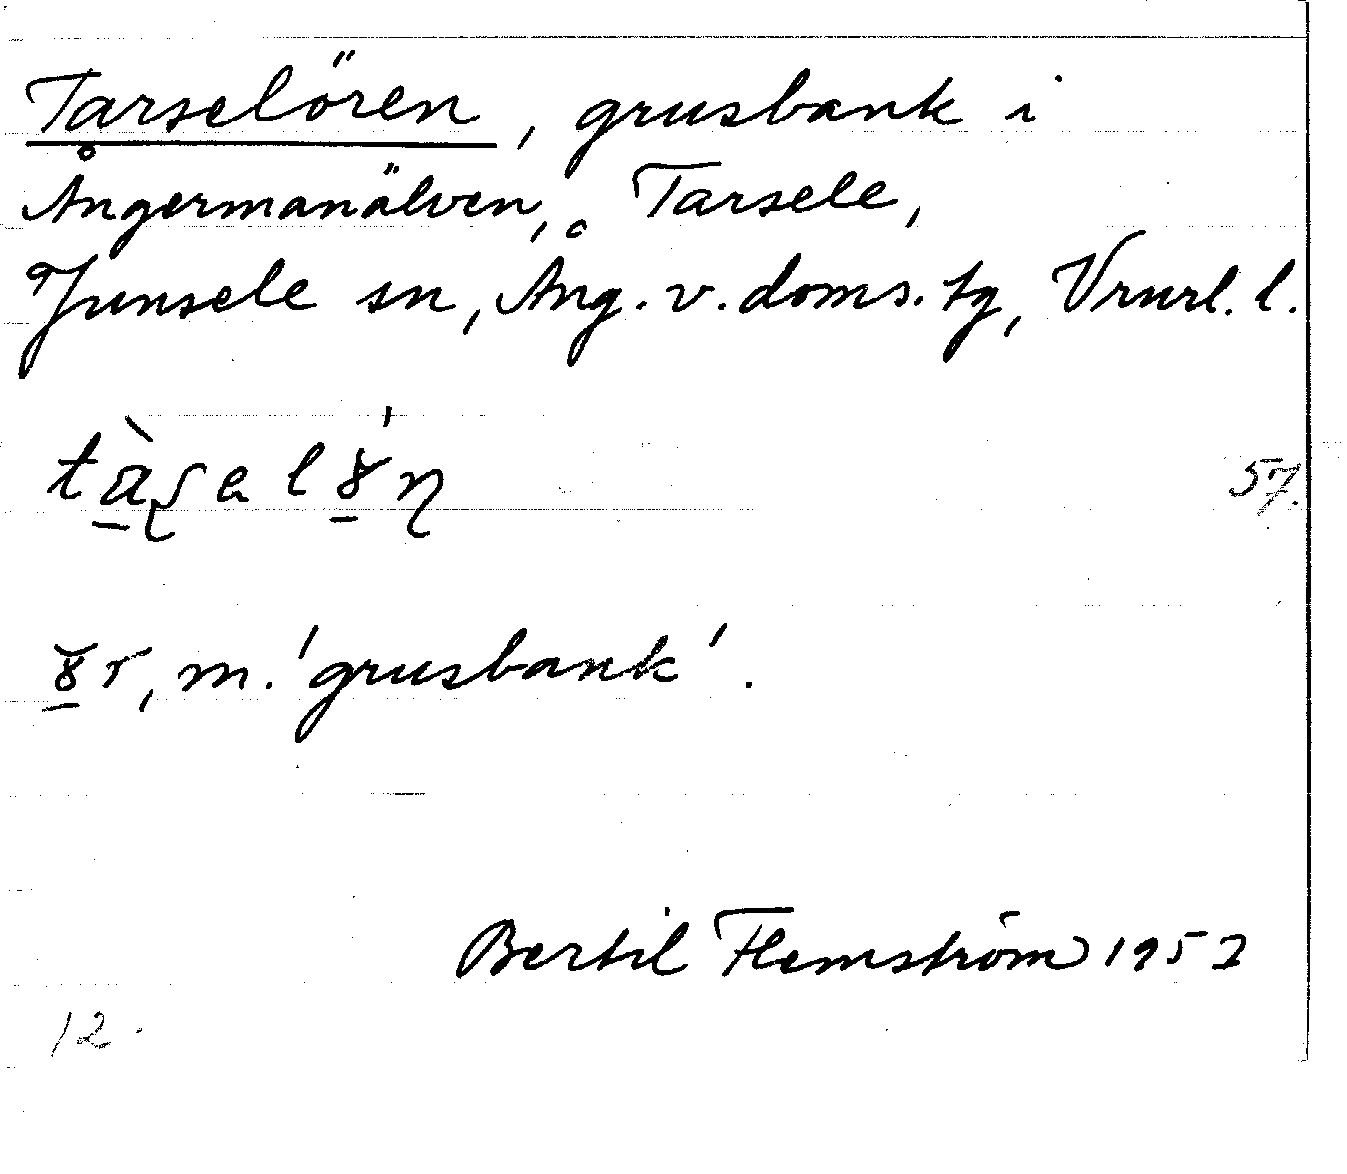 Tarselören, grusbank i
Ångermanälven, Tarsele,
Junsele sn, Ång. v. doms. tg, Vrnrl. l.
57.
m. 'grusbank'.
Bertil Flemström 1952
12.